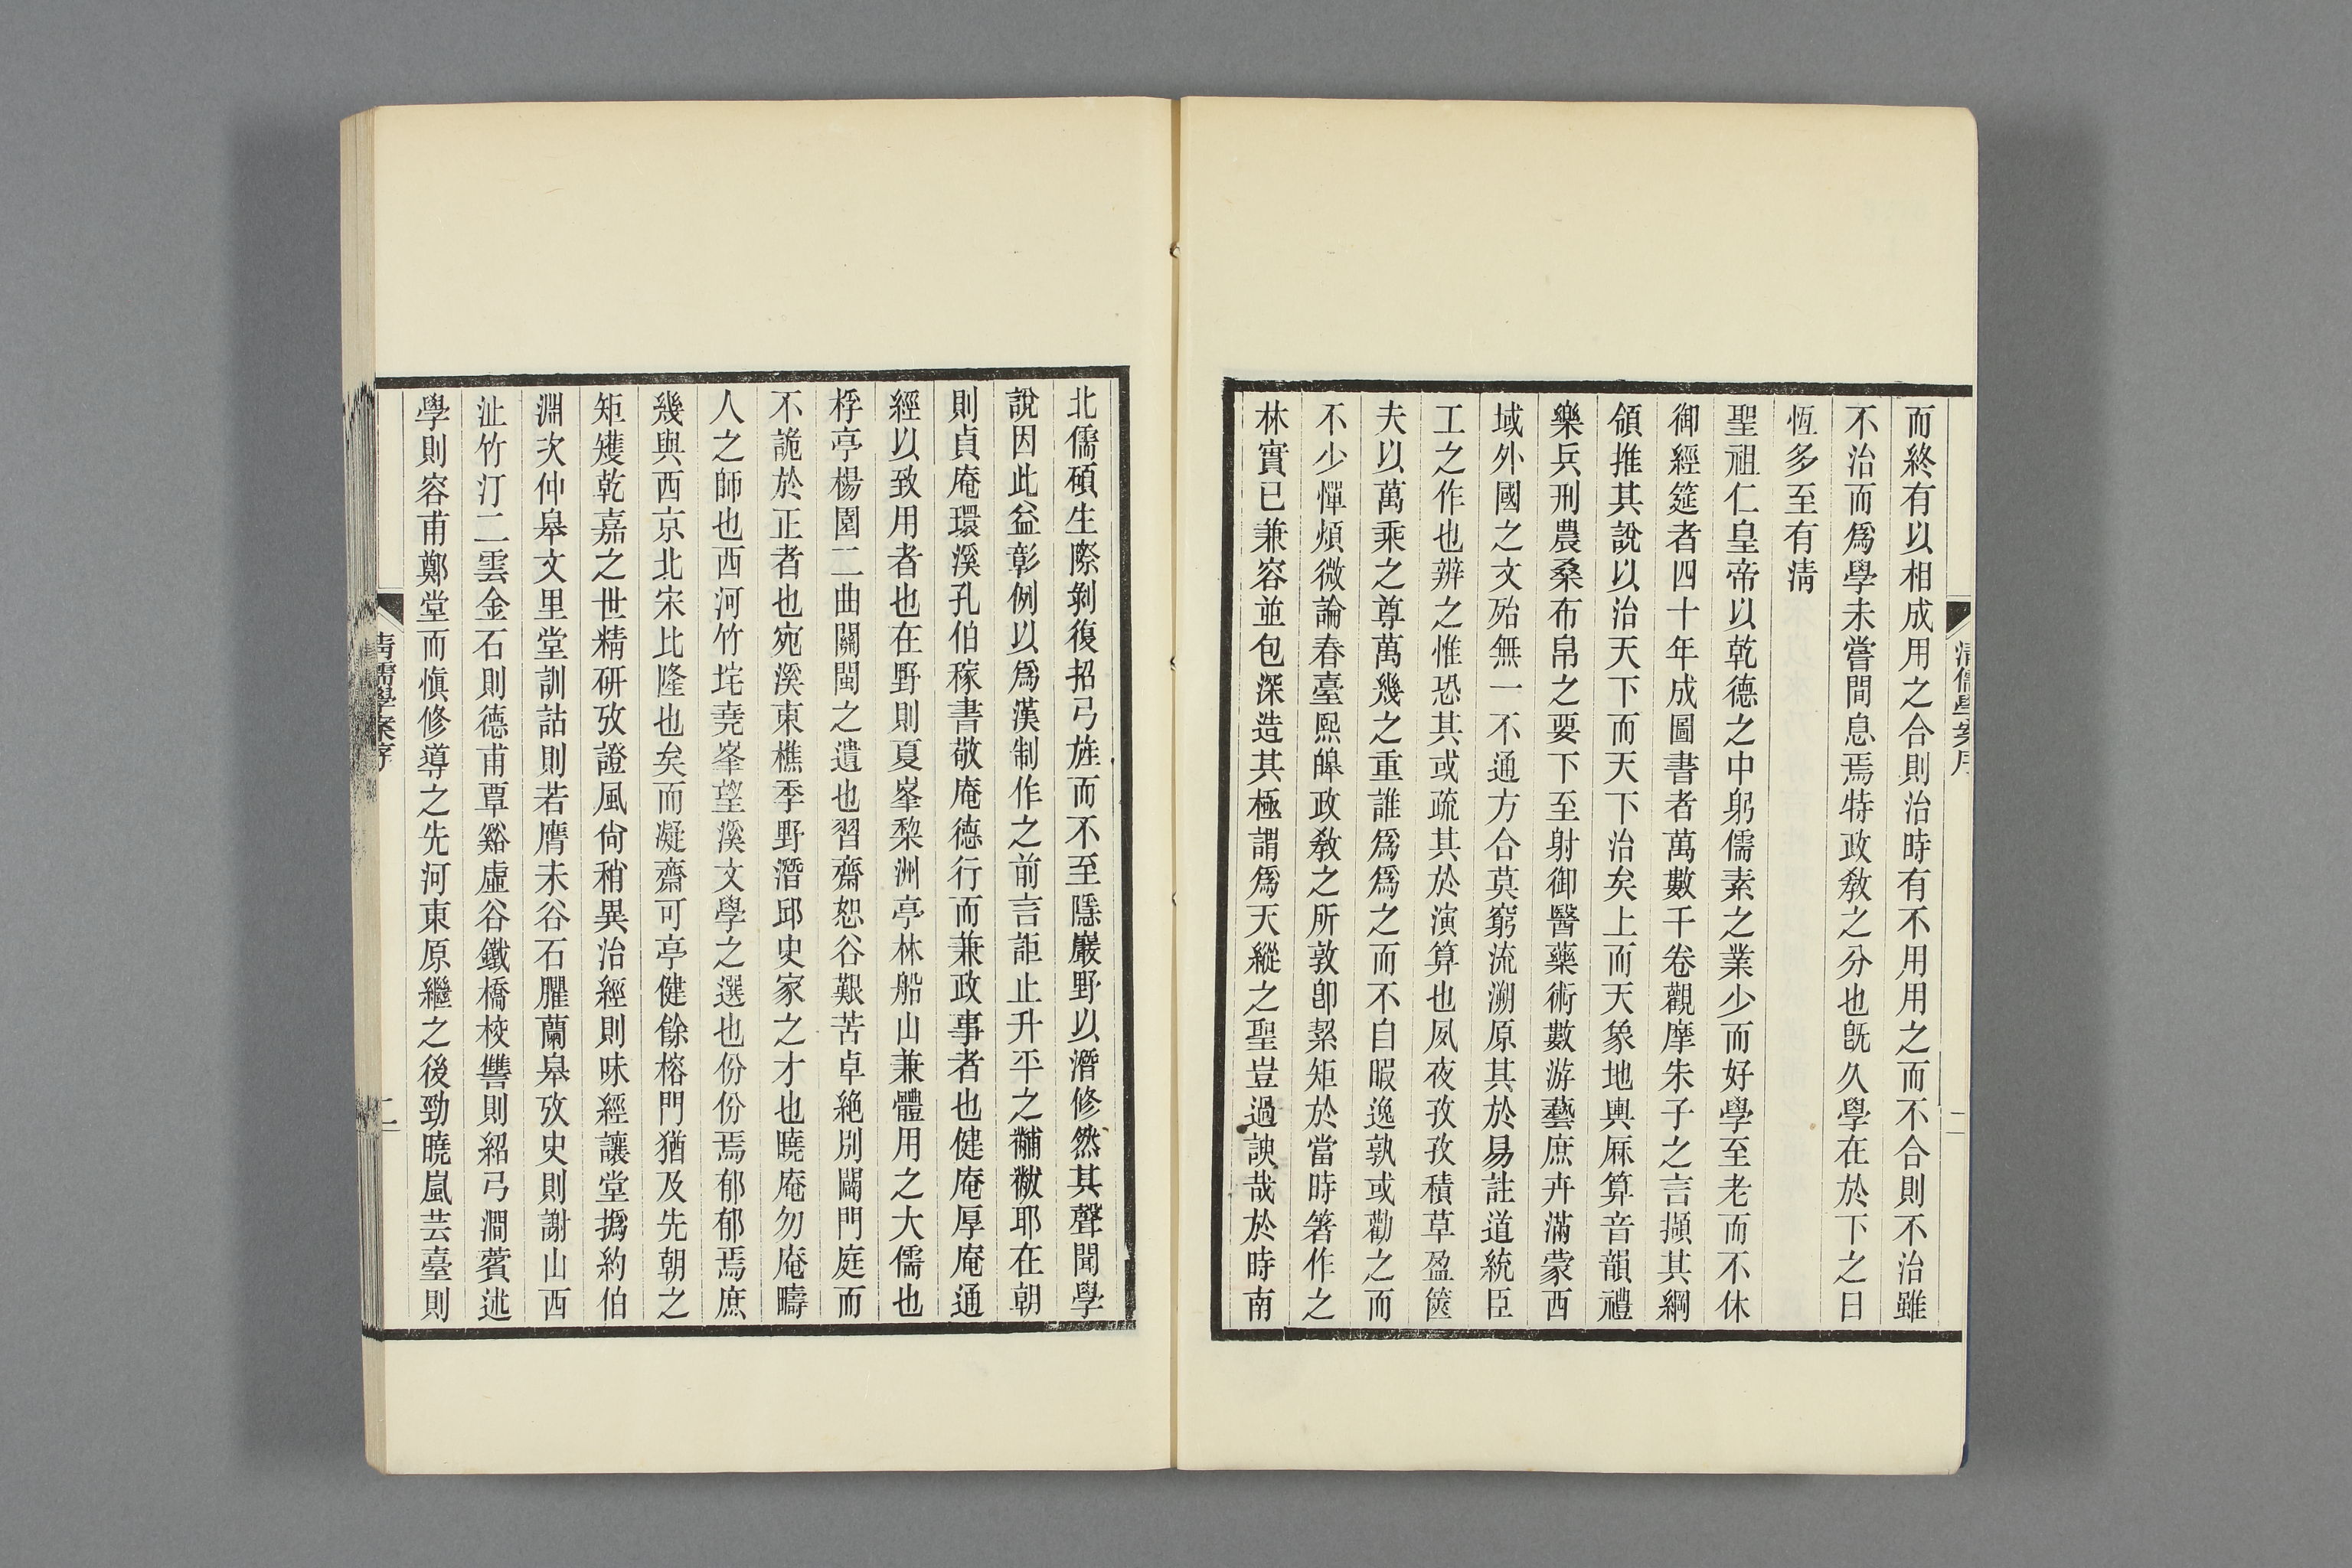 而終有以相成用之合則治時有不用用之而不合則不治雖
不治而爲學未嘗閒息焉特政敎之分也旣久學在於下之日
恆多至有淸
聖祖仁皇帝以乾德之中躬儒素之業少而好學至老而不休
御經筵者四十年成圖書者萬數千卷觀摩朱子之言擷其綱
領推其說以治天下而天下治矣上而天象地輿厤算音韻禮
樂兵刑農桑布帛之要下至射御醫藥術數游藝庶卉滿蒙西
域外國之文殆無一不通方合莫窮流溯原其於易註道統臣
工之作也辨之惟恐其或疏其於演算也夙夜孜孜積草盈篋
夫以萬乘之尊萬幾之重誰爲爲之而不自暇逸孰或勸之而
不少憚煩微論春臺熙皞政敎之所敦卽絜矩於當時箸作之
林實已兼容並包深造其極謂爲天縱之聖豈過諛哉於時南
淸儒學案序
二
北儒碩生際剝復招弓旌而不至隱巖野以潛修然其聲聞學
說因此益彰例以爲漢制作之前言詎止升平之黼黻耶在朝
則貞庵環溪孔伯稼書敬庵德行而兼政事者也健庵厚庵通
經以致用者也在野則夏峯棃洲亭林船山兼體用之大儒也
桴亭楊園二曲關閩之遺也習齋恕谷艱苦卓絶別闢門庭而
不詭於正者也宛溪東樵季野潛邱史家之才也曉庵勿庵疇
人之師也西河竹垞堯峯望溪文學之選也份份焉郁郁焉庶
幾與西京北宋比隆也矣而凝齋可亭健餘榕門猶及先朝之
矩矱乾嘉之世精研攷證風尙稍異治經則味經讓堂撝約伯
淵次仲皋文里堂訓詁則若膺未谷石臞蘭皋攷史則謝山西
沚竹汀二雲金石則德甫覃谿虛谷鐵橋校讐則紹弓澗薲述
學則容甫鄭堂而愼修導之先河東原繼之後勁曉嵐芸臺則
淸儒學案序
二